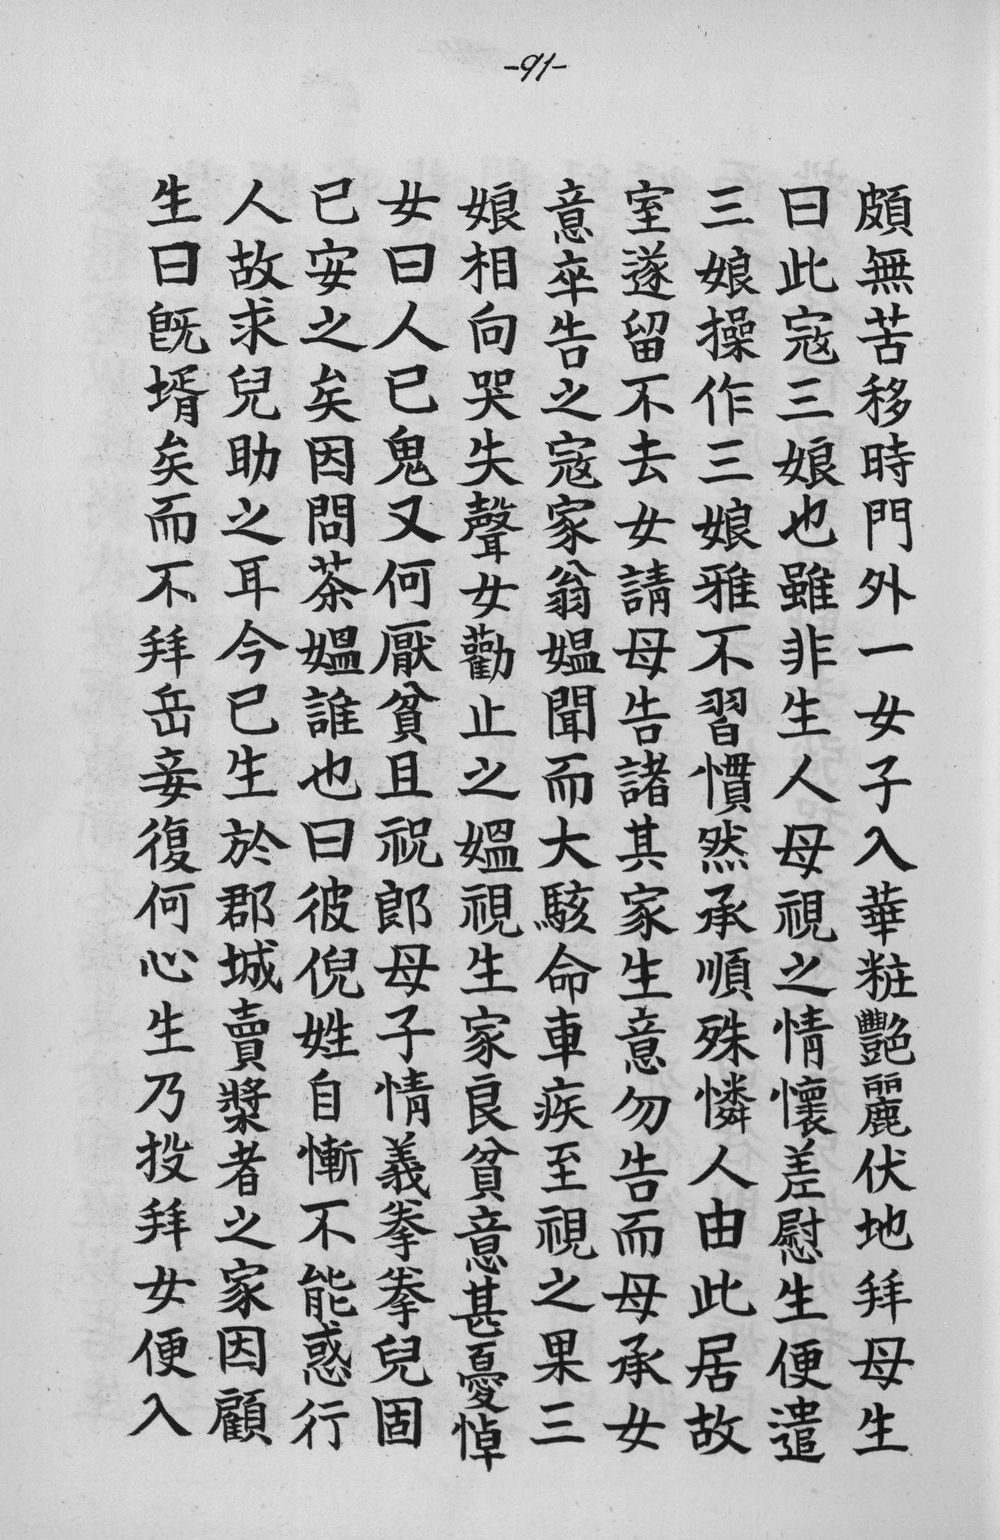 -91-
頗無苦移時門外一女子入華粧艷麗伏地拜母生
曰此寇三娘也雖非生人母視之情懷差慰生便遣
三娘操作三娘雅不習慣然承順殊憐人由此居故
室遂留不去女請母告諸其家生意勿告而母承女
意卒告之寇家翁媼聞而大駭命車疾至視之果三
娘相向哭失聲女勸止之媼視生家良貧意甚憂悼
女曰人已鬼又何厭貧且祝郎母子情義拳拳兒固
已安之矣因問茶媼誰也曰彼倪姓自慚不能惑行
人故求兒助之耳今已生於郡城賣漿者之家因顧
生曰既壻矣而不拜岳妾復何心生乃投拜女便入